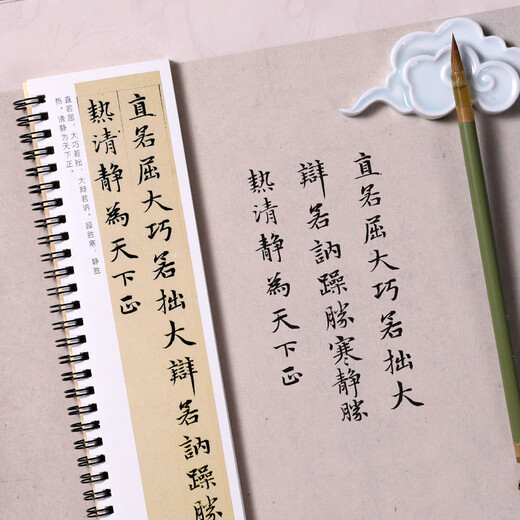 直若屈大巧若拙大
辯若訥躁勝寒静勝
熱清静為天下正
直若屈大巧若拙大辯若訥躁勝
熱清静為天下正
直若屈，大巧若拙，大辩若讷。躁胜寒，静胜
热。清静为天下正。